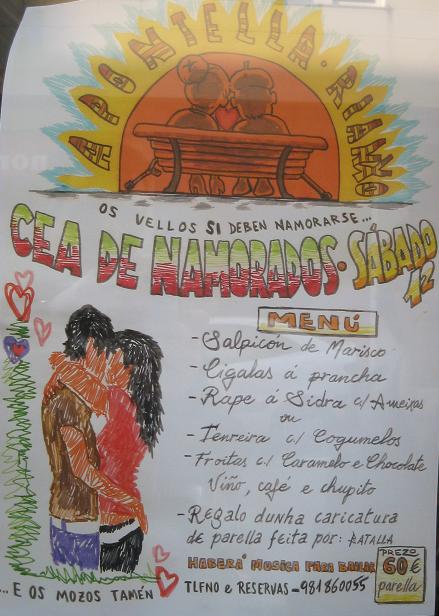 A FONTELLA · RIANXO
OS VELLOS SI DEBEN NAMORARSE...
CEA DE NAMORADOS · SÁBADO 12
MENÚ
- Salpicón de Marisco
- Cigalas á prancha
- Rape á Sidra c/ Ameixas
ou
- Tenreira c/ Cogumelos
- Froitas c/ Caramelo e Chocolate
Viño, café e chupito
- Regalo dunha caricatura
de parella feita por: RATALLA
HABERÁ MÚSICA PARA BAILAR
PREZO
60 €
parella
TLFNO e RESERVAS - 981860055
... E OS MOZOS TAMÉN